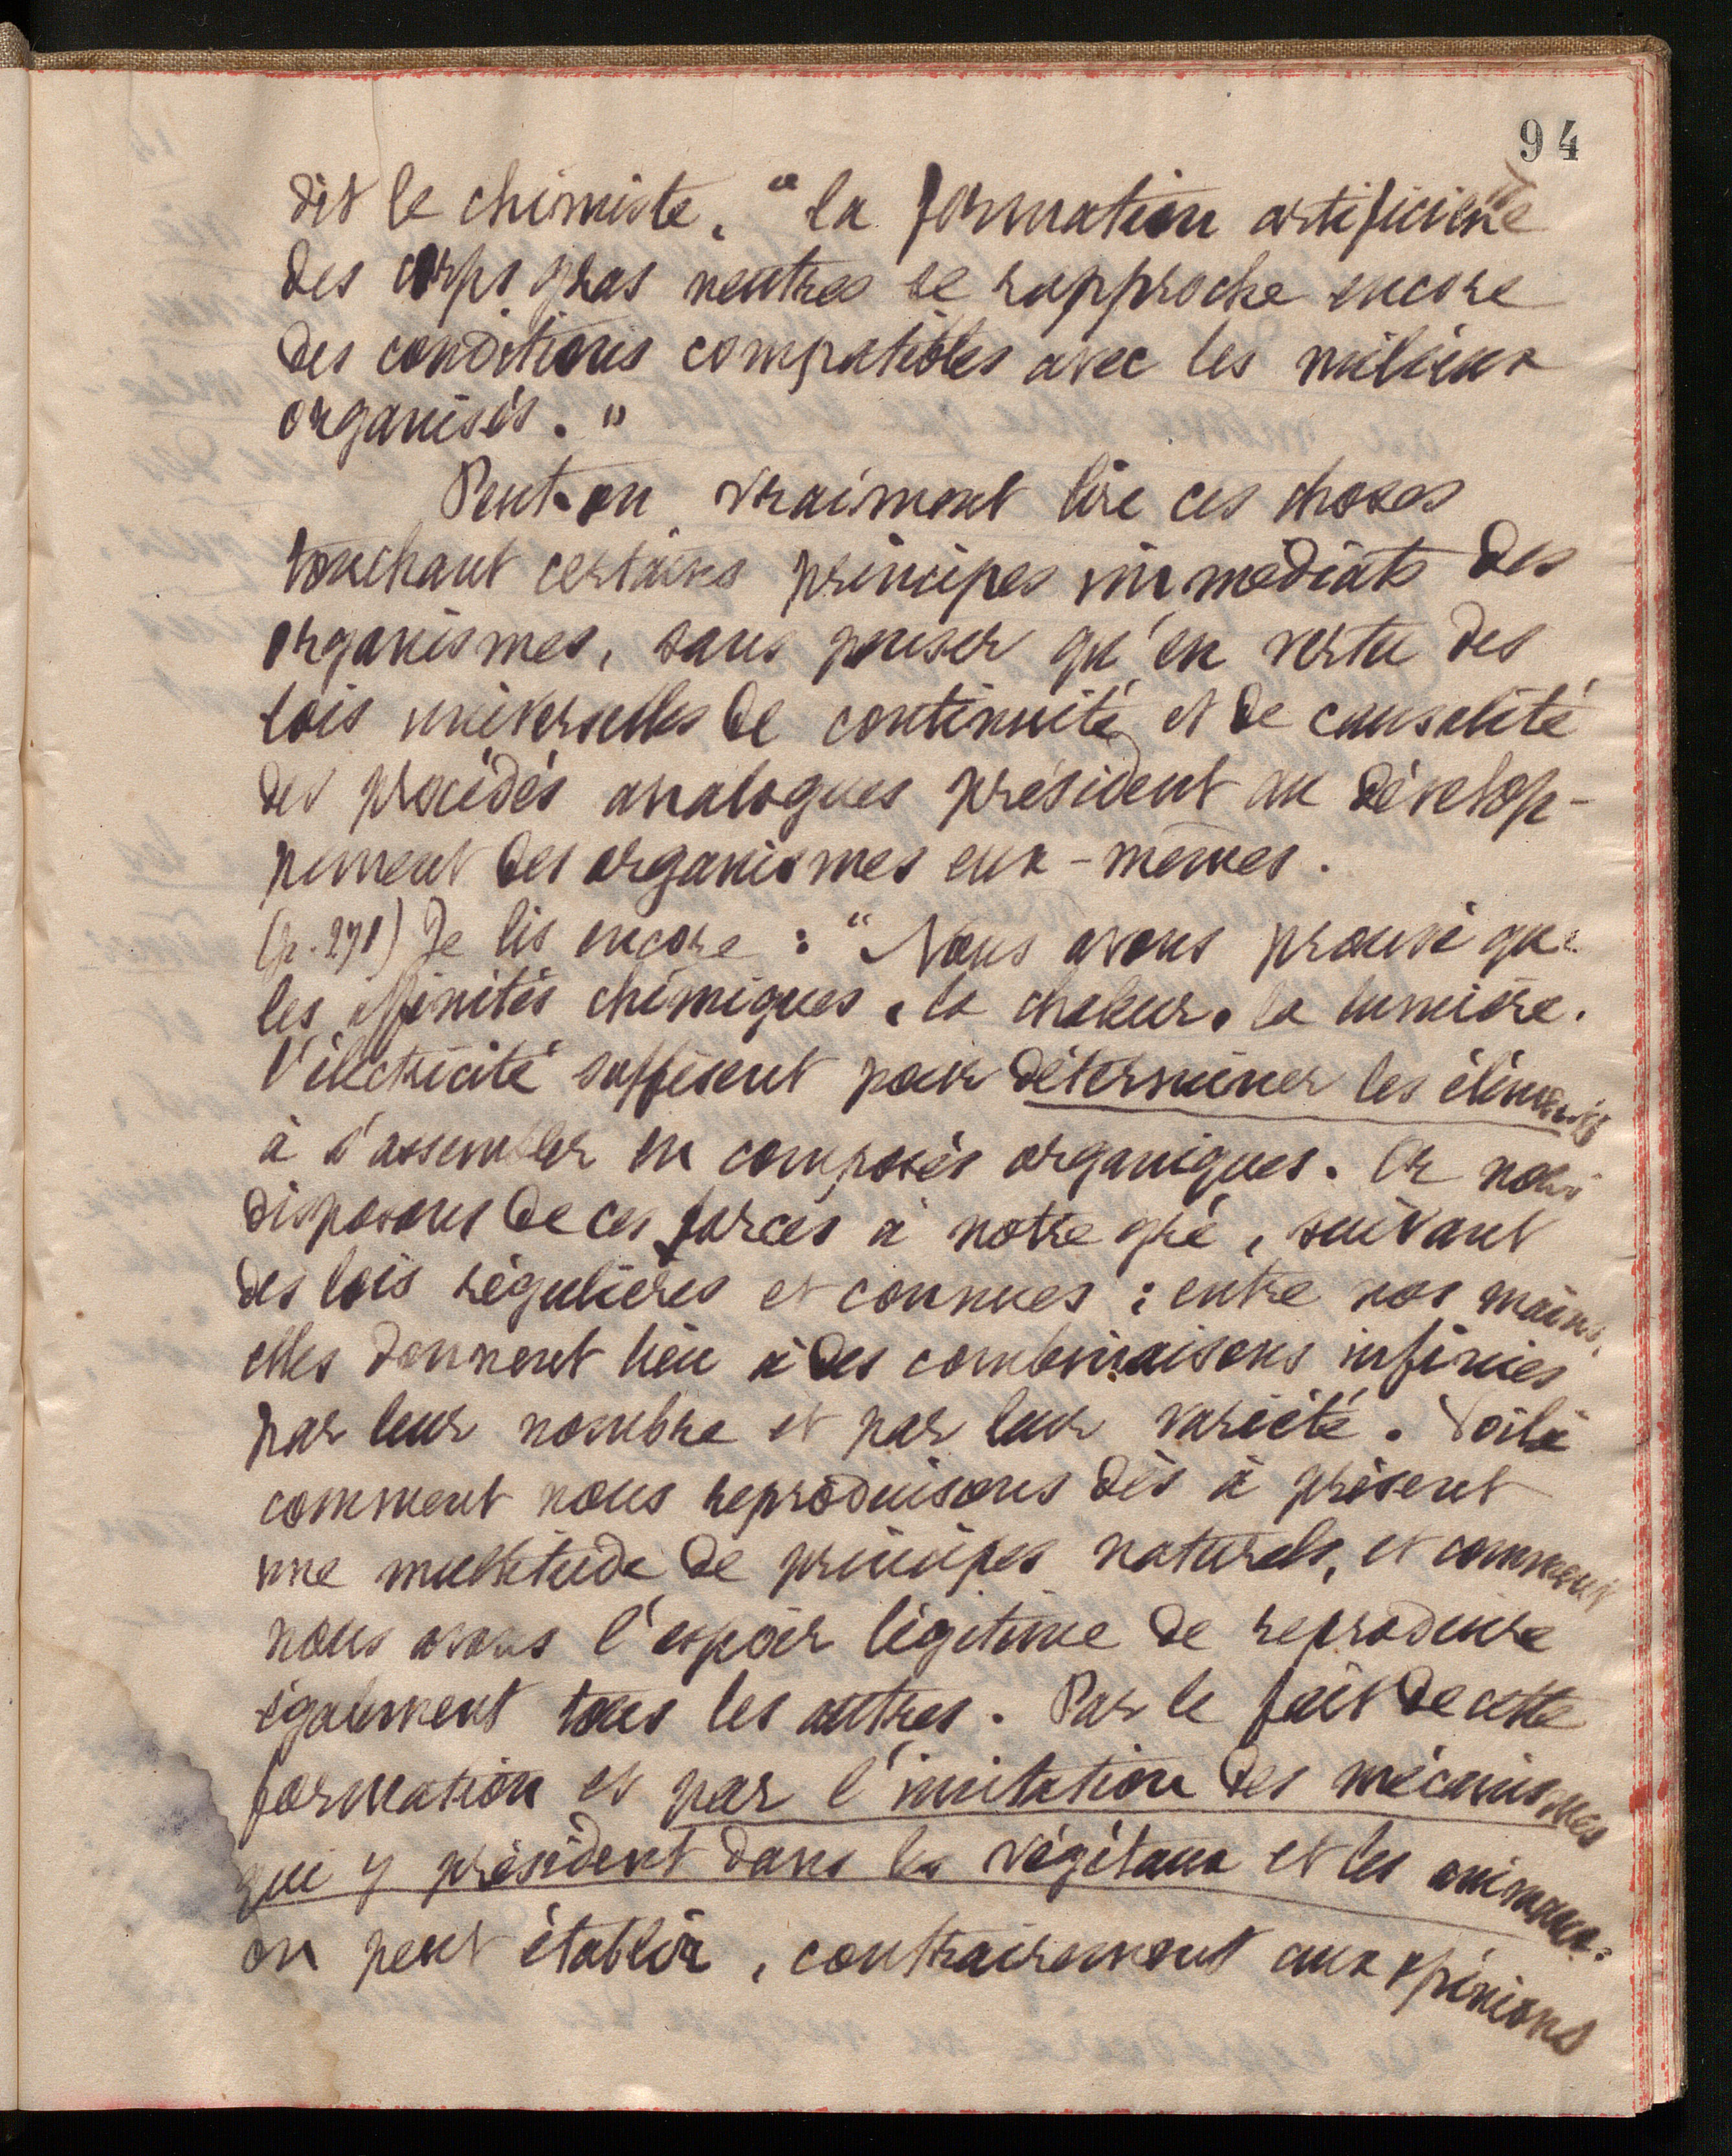 94
dit le chimiste, "la formation artificielle
des corps gras neutres se rapproche encore
des conditions compatibles avec les milieux
organisés."
Peut-on vraiment lire ces choses
touchant certains principes immédiats des
organismes, sans penser qu'en vertu des
lois universelles de continuité et de causalité
des procédés analogues président au dévelop-
pement des organismes eux-mêmes.
(p. 271) Je lis encore : "Nous avons prouvé que
les affinités chimiques, la chaleur, la lumière,
l'électricité suffisent pour déterminer les éléments
à s'assembler en composés organiques. Or nous
disposons de ces forces à notre gré, suivant
des lois régulières et connues : entre nos mains,
elles donnent lieu à des combinaisons infinies
par leur nombre et par leur variété. Voilà
comment nous reproduisons dès à présent
une multitude de principes naturels, et comment
nous avons l'espoir légitime de reproduire
également tous les autres. Par le fait de cette
formation et par l'imitation des mécanismes
qui y président dans les végétaux et les animaux,
on peut établir, contrairement aux opinions